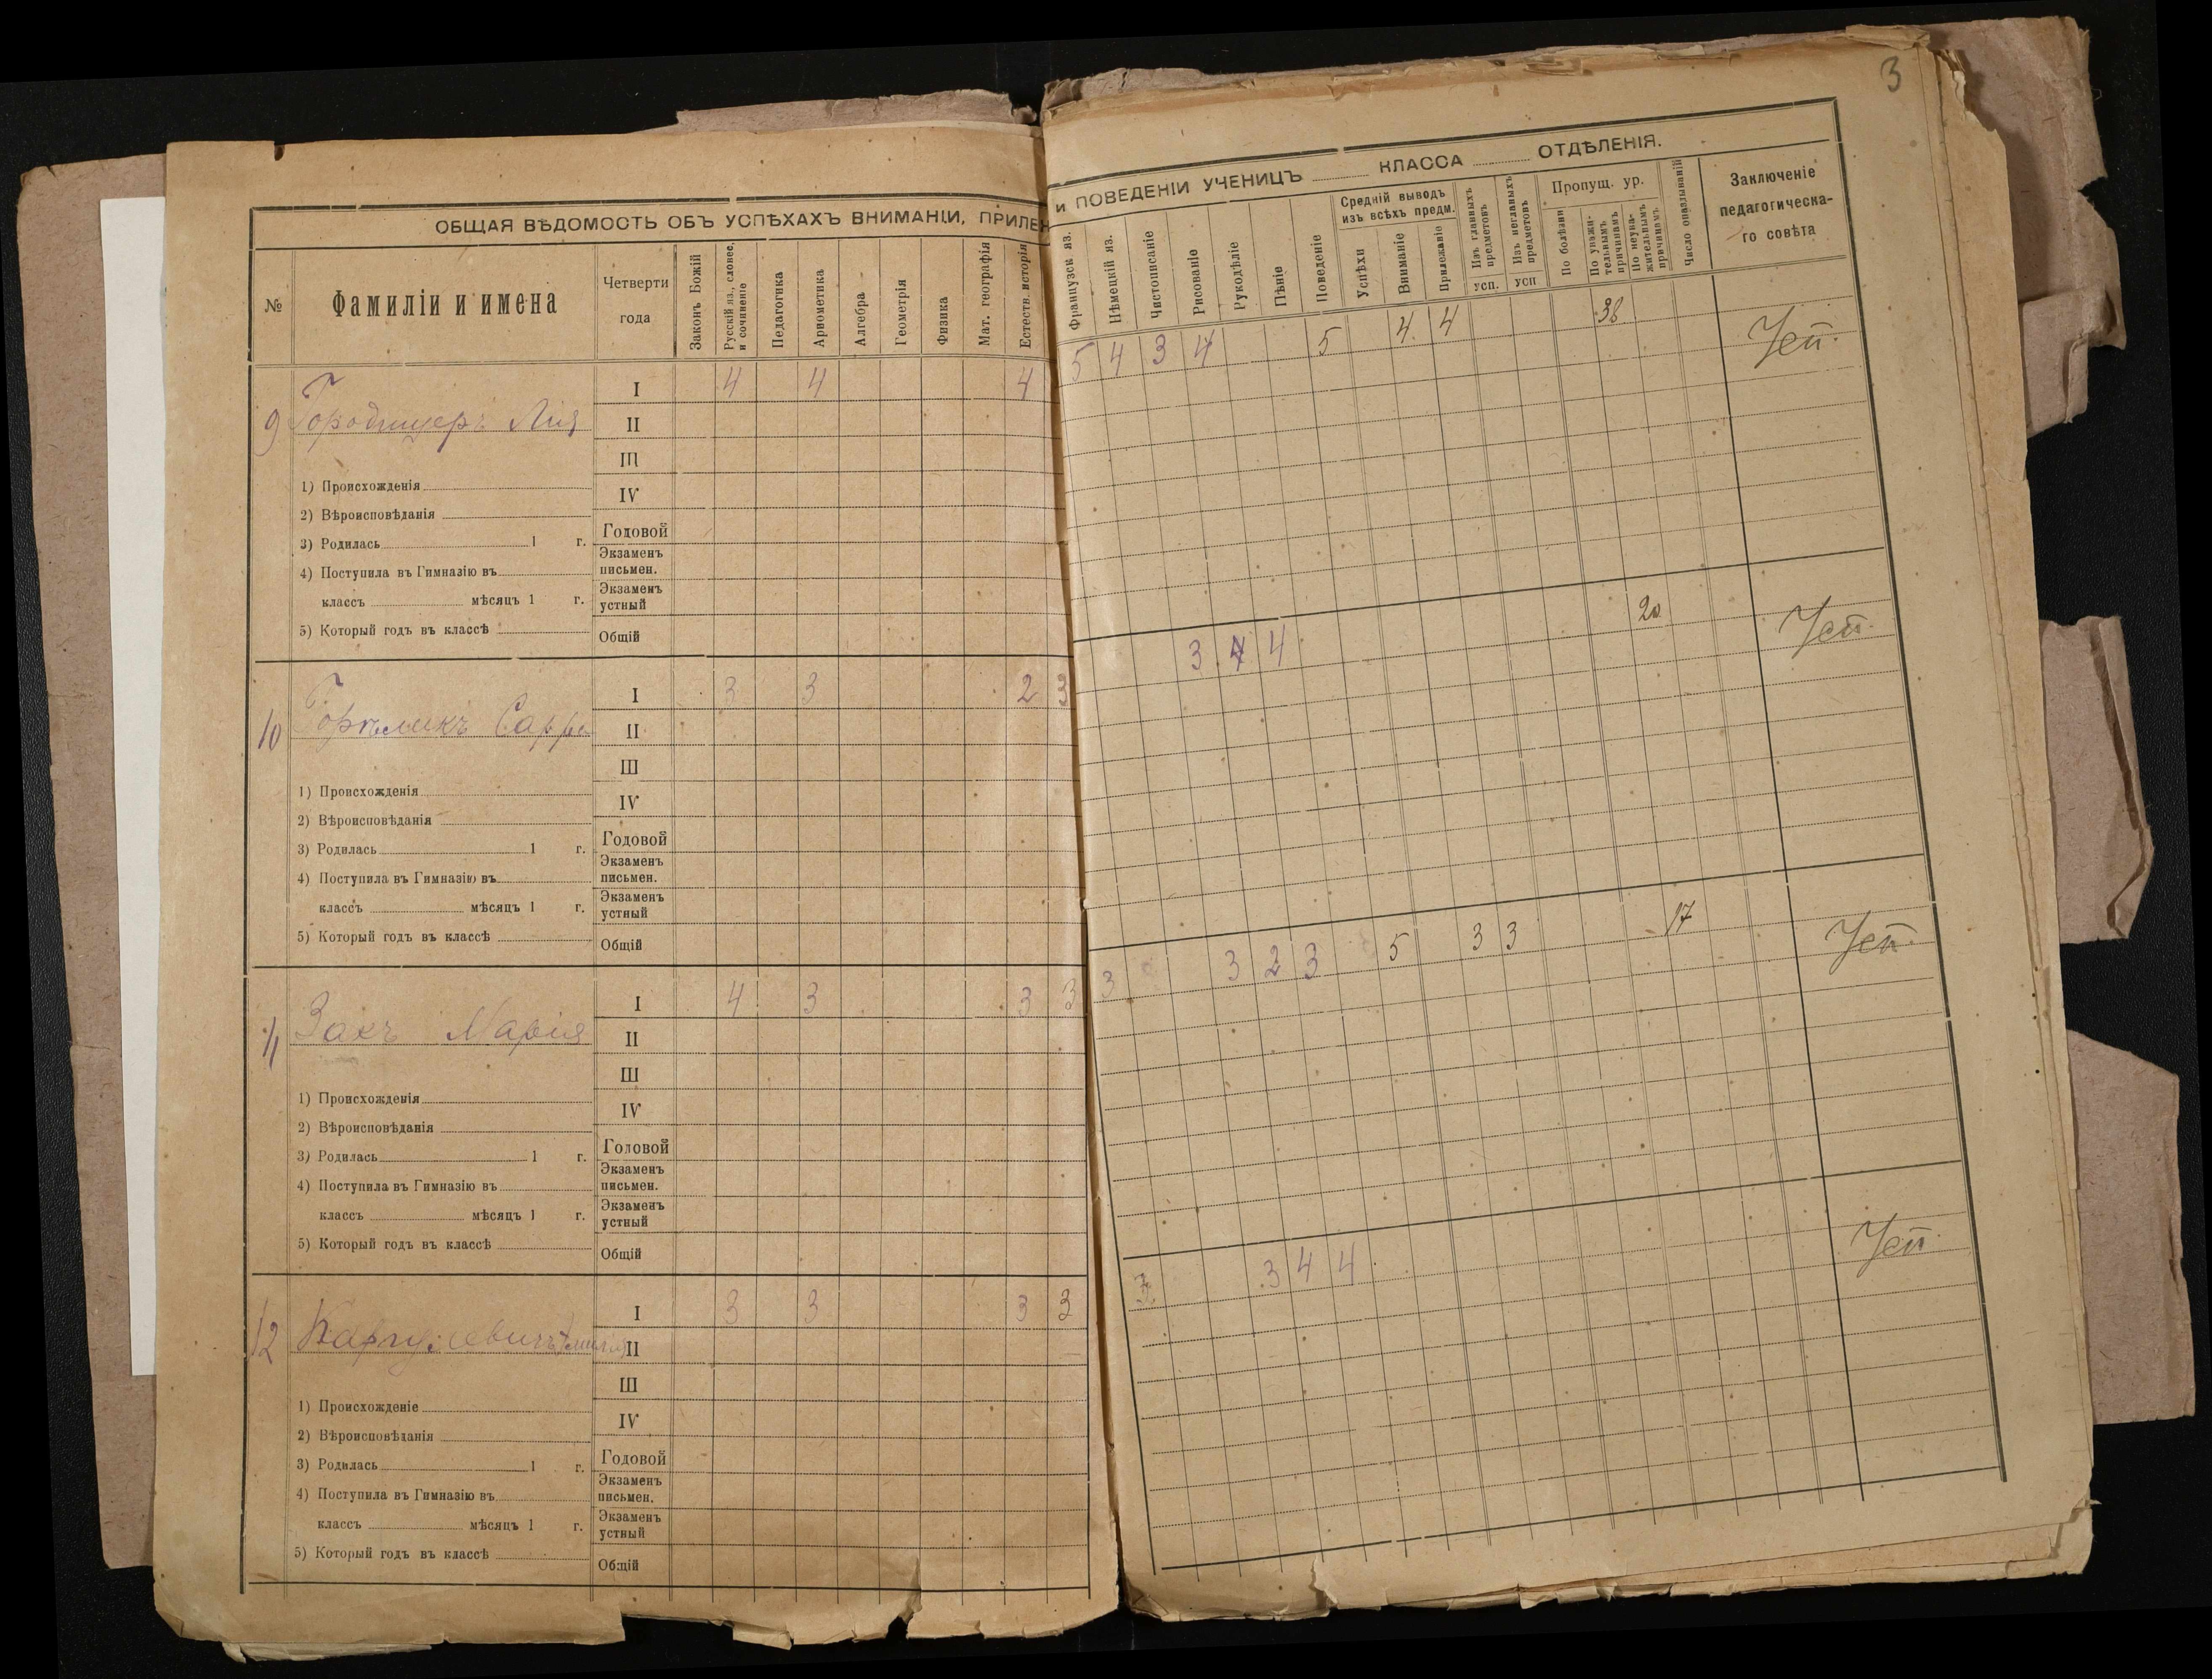 3
ОБЩАЯ ВѢДОМОСТЬ ОБЪ УСПѢХАХЪ ВНИМАНІИ, ПРИЛЕЖ
И ПОВЕДЕНІИ УЧЕНИЦЪ КЛАССА ОТДѢЛЕНІЯ.
№
Фамиліи и имена
Четверти
года
Законъ Божій
Русскій яз., словес.
и сочиненіе
Педагогика
Ариѳметика
Алгебра
Геометрія
Физика
Мат. географія
Естеств. исторія
Французск яз.
Нѣмецкій яз.
Чистописаніе
Рисованіе
Рукодѣліе
Пѣніе
Поведеніе
Средній выводъ
изъ всѣхъ предм.
Успѣхи
Вниманіе
Прилежаніе
Изъ главныхъ
предметовъ
УСП.
Изъ неглавныхъ
предметовъ
УСП
Пропущ. ур.
По болѣзни
По уважи-
тельнымъ
причинамъ
По неува-
жительнымъ
причинамъ
Число опаздываній
Заключеніе
педагогическа-
го совѣта
9 Городищеръ Лія
I 4 4 4 5 4 3 4 5 4 4 38 Усп.
II
III
IV
Годовой
Экзаменъ
письмен.
Экзаменъ
устный
Общій
1) Происхожденія
2) Вѣроисповѣданія
3) Родилась 1 г.
4) Поступила въ Гимназію въ
классъ мѣсяцъ 1 г.
5) Который годъ въ классѣ
10 Горѣликъ Сарра
I 3 3 2 3 3 4 4 20 Усп.
II
III
IV
Годовой
Экзаменъ
письмен.
Экзаменъ
устный
Общій
1) Происхожденія
2) Вѣроисповѣданія
3) Родилась 1 г.
4) Поступила въ Гимназію въ
классъ мѣсяцъ 1 г.
5) Который годъ въ классѣ
11 Закъ Марія
I 4 3 3 3 3 3 2 3 5 3 3 17 Усп.
II
III
IV
Годовой
Экзаменъ
письмен.
Экзаменъ
устный
Общій
1) Происхожденія
2) Вѣроисповѣданія
3) Родилась 1 г.
4) Поступила въ Гимназію въ
классъ мѣсяцъ 1 г.
5) Который годъ въ классѣ
12
I 3 3 3 3 3 3 4 4 Усп.
II
III
IV
Годовой
Экзаменъ
письмен.
Экзаменъ
устный
Общій
1) Происхожденіе
2) Вѣроисповѣданія
3) Родилась 1 г.
4) Поступила въ Гимназію въ
классъ мѣсяцъ 1 г.
5) Который годъ въ классѣ